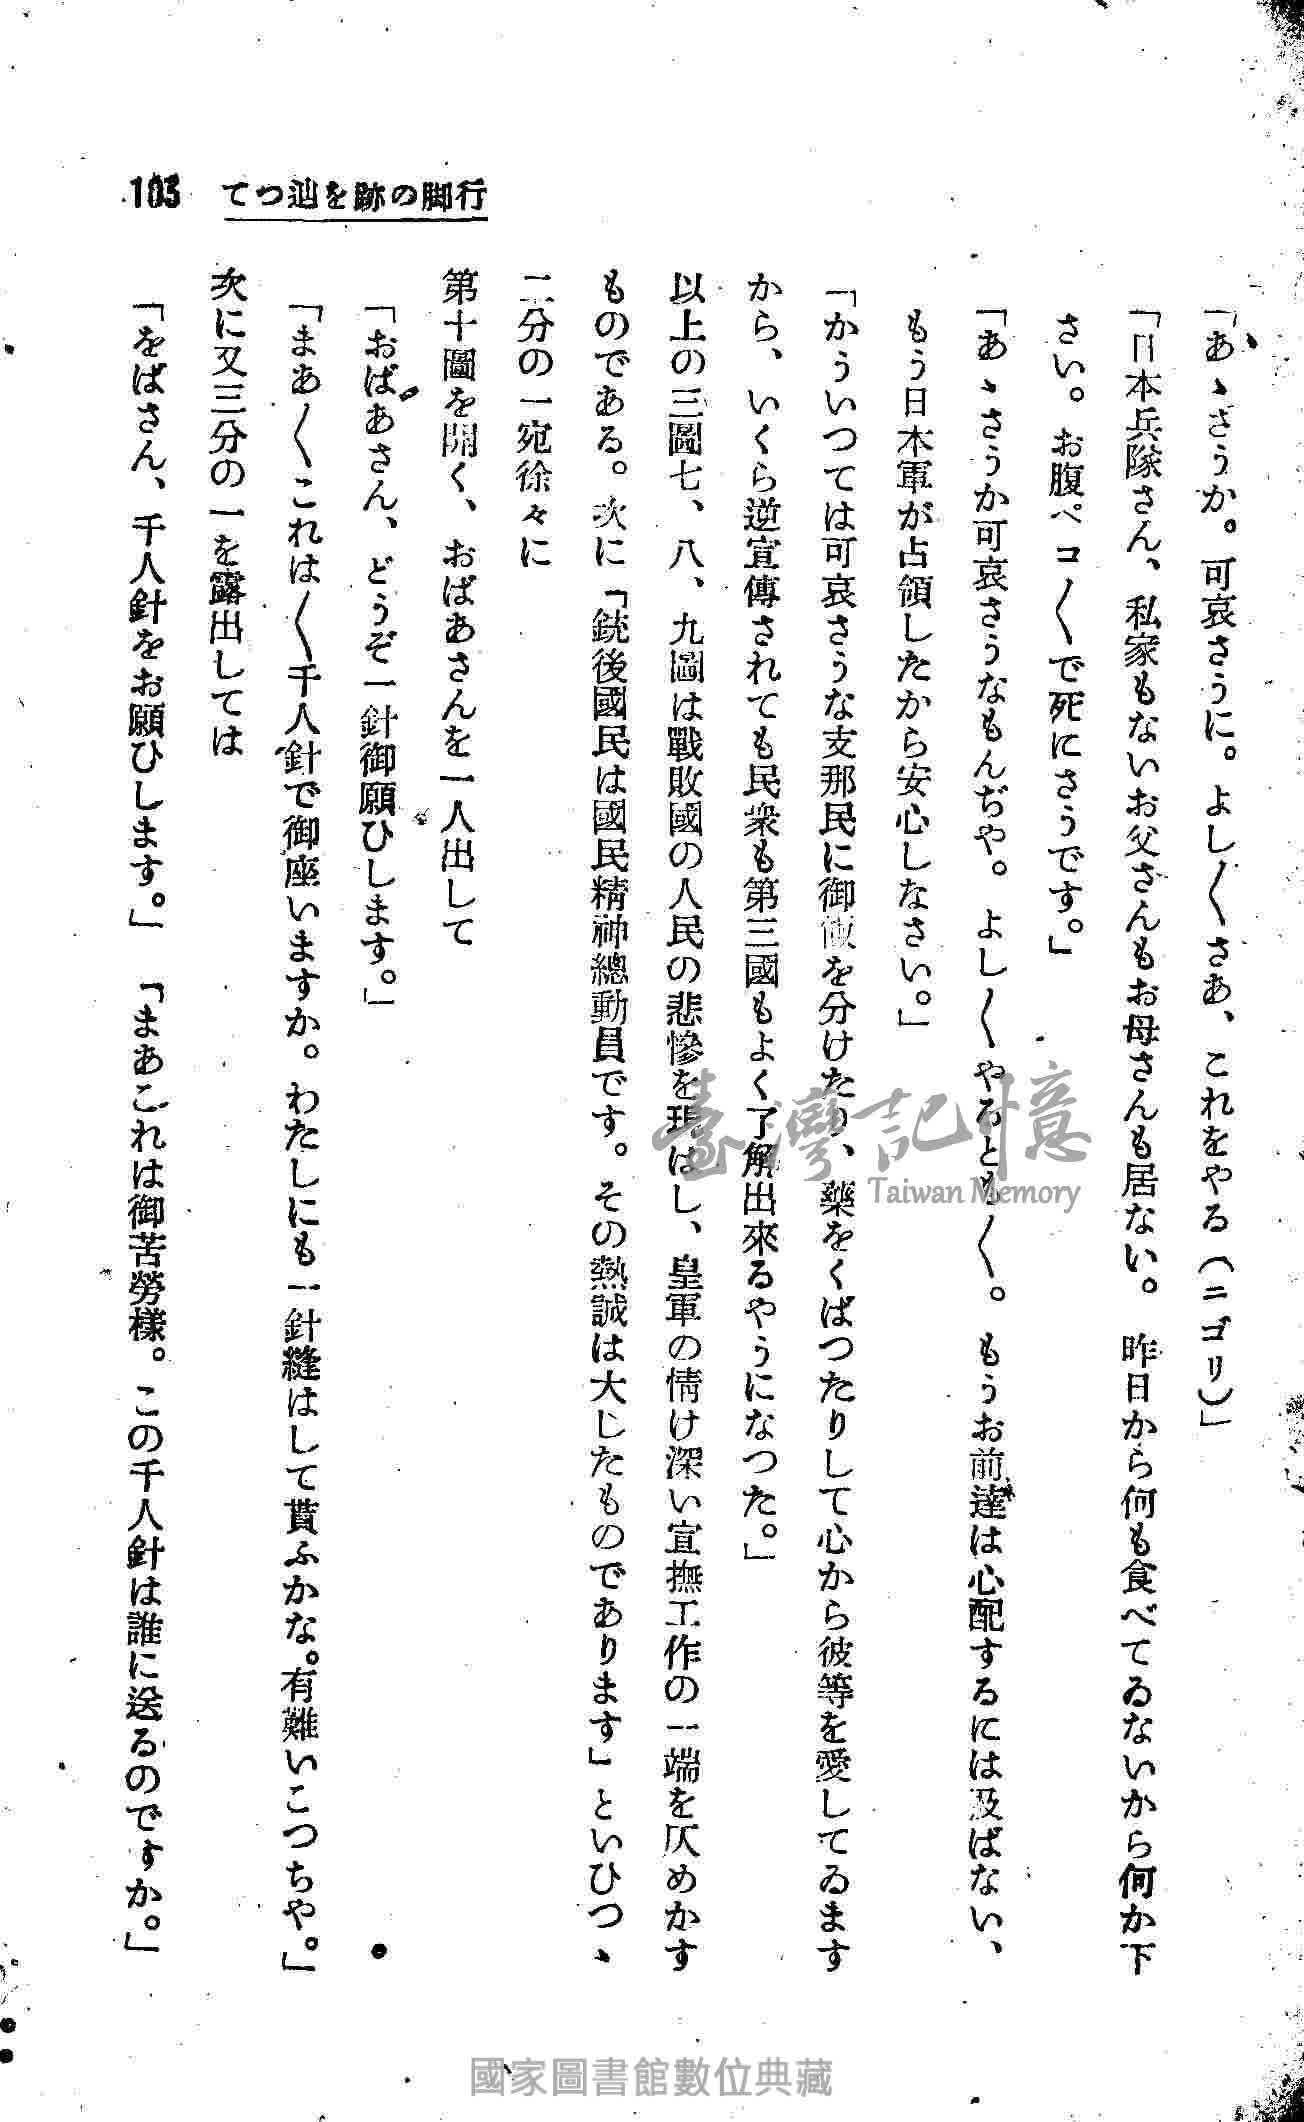 行脚の跡を辿つて　103
「あゝさうか。可哀さうに。よし〱さあ、これをやる（ニゴリ）」
「日本兵隊さん、私家もないお父さんもお母さんも居ない。　昨日から何も食べてゐないから何か下
さい。お腹ペコ〱で死にさうです。」
「あゝさうか可哀さうなもんぢや。よし〱やるとも〱。　もうお前達は心配するには及ばない、
もう日本軍が占領したから安心しなさい。」
「かういつては可哀さうな支那民に御飯を分けたり、藥をくばつたりして心から彼等を愛してゐます
から、いくら逆宣傳されても民衆も第三國もよく了解出來るやうになつた。」
以上の三圖七、八、九圖は戰敗國の人民の悲慘を現はし、皇軍の情け深い宣撫工作の一端を仄めかす
ものである。次に「銃後國民は國民精神總動員です。その熱誠は大したものであります」といひつゝ
二分の一宛徐々に
第十圖を開く、おばあさんを一人出して
「おばあさん、どうぞ一針御願ひします。」
「まあ〱これは〱千人針で御座いますか。わたしにも一針縫はして貰ふかな。有難いこつちや。」
次に又三分の一を露出しては
「をばさん、千人針をお願ひします。」　「まあこれは御苦勞様。この千人針は誰に送るのですか。」
臺灣記憶
Taiwan Memory
國家圖書館數位典藏